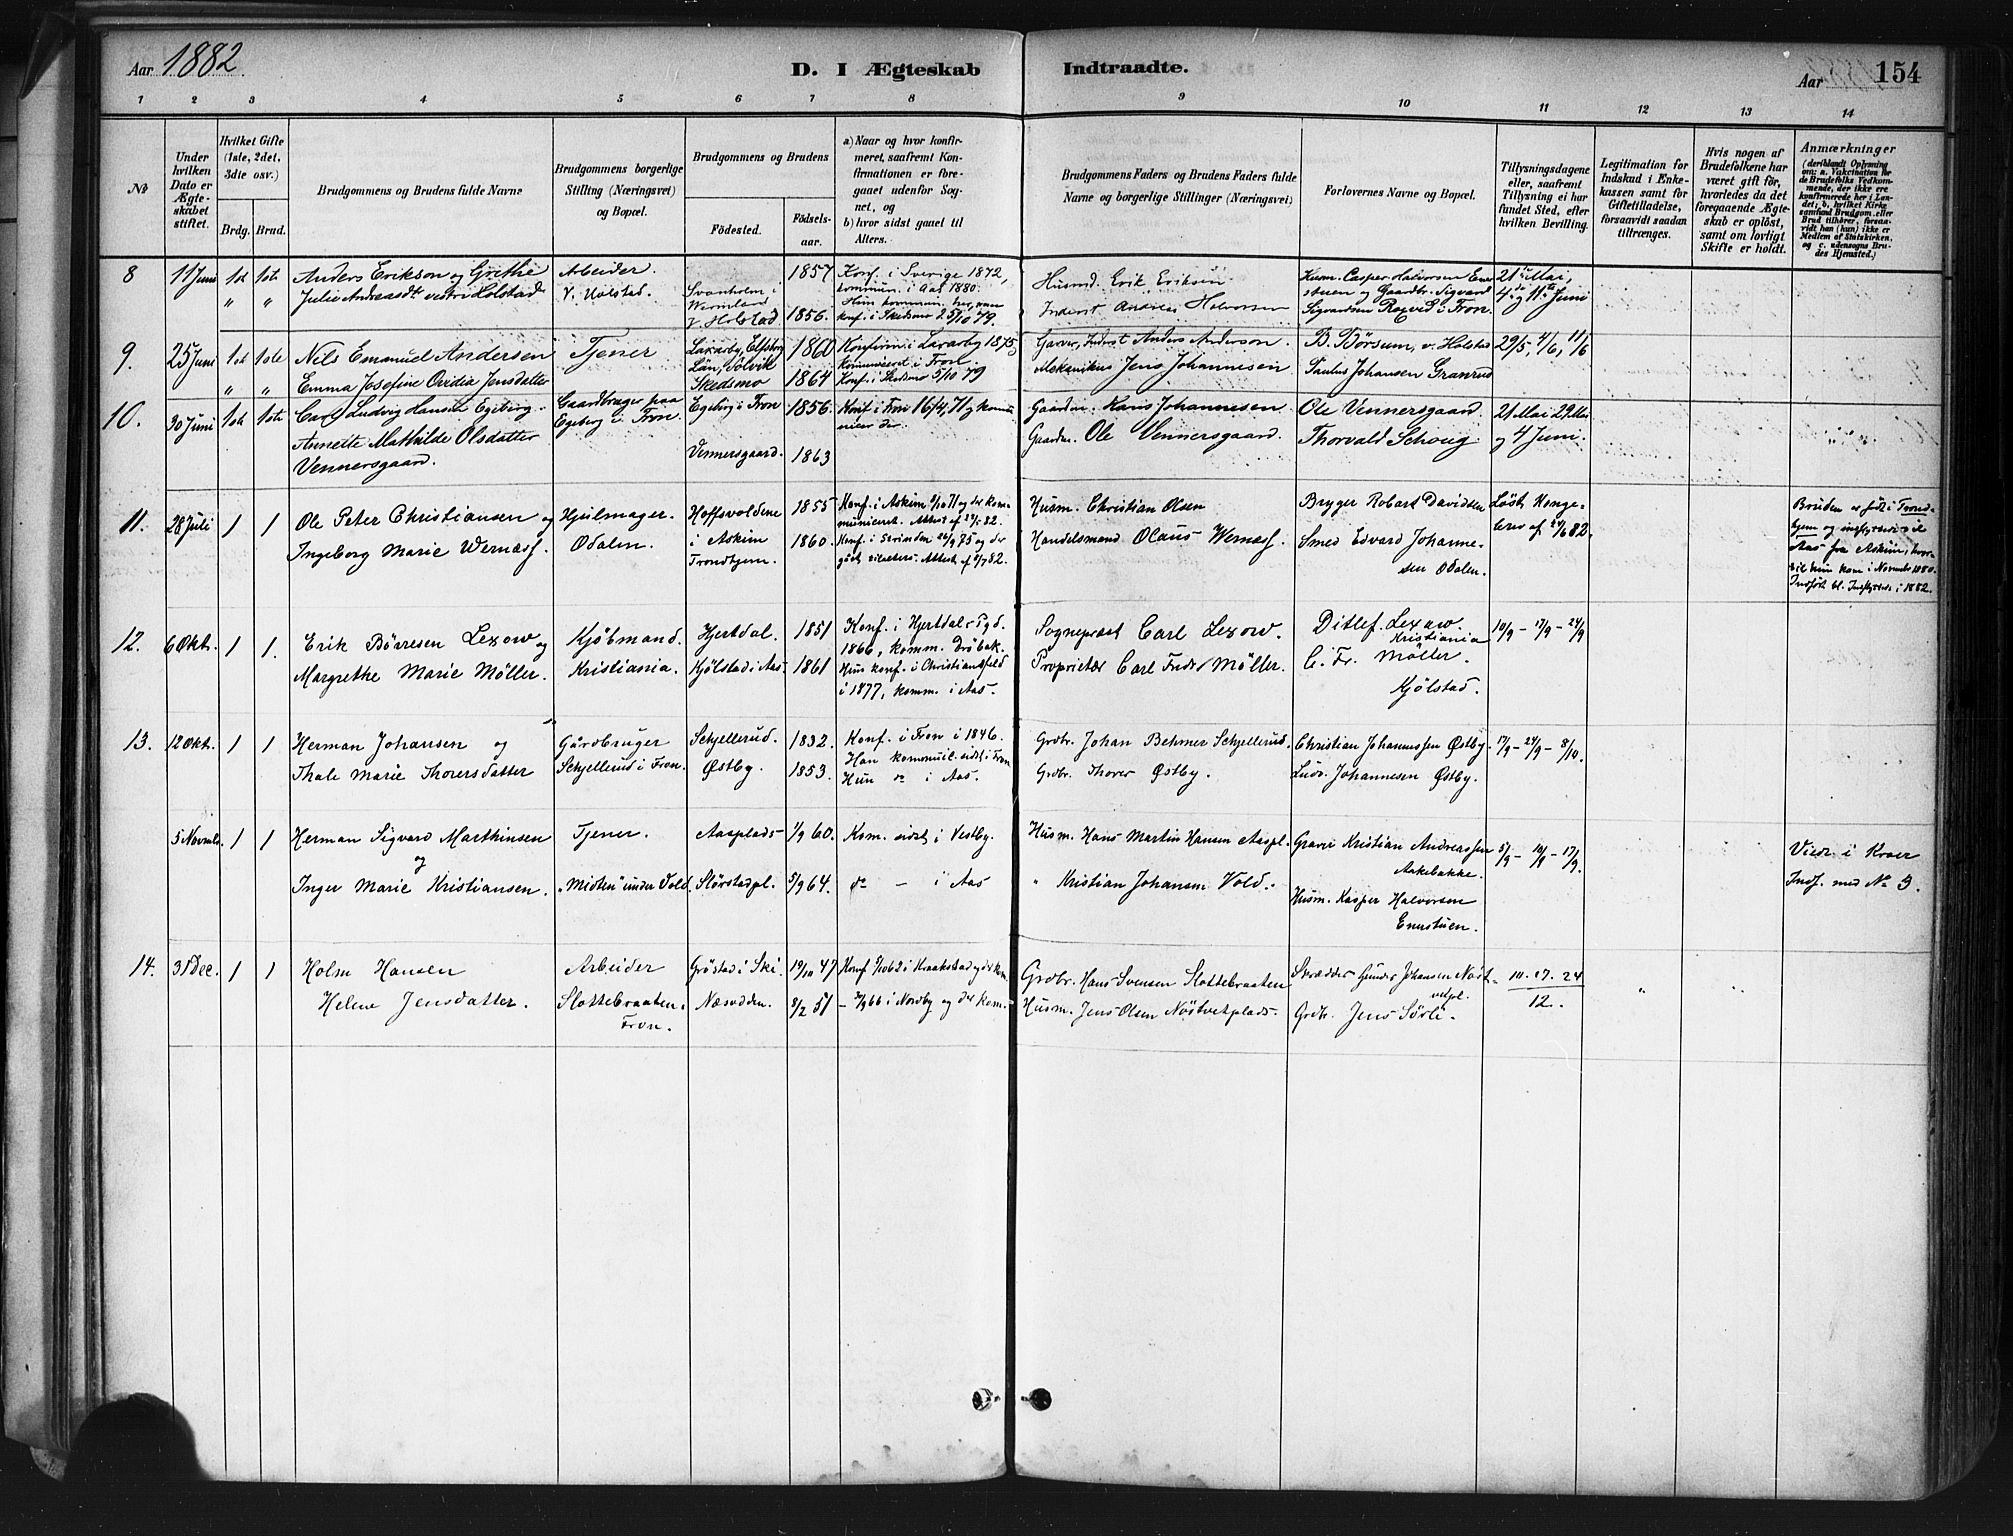 Aar 1882.
D. I Ægteskab Indtraadte.
Aar
154
1 2 3 4 5 6 7 8 9 10 11 12 13 14
No
Under hvilken Dato er Ægteskabet stiftet.
Hvilket Gifte (1ste, 2det, 3die osv.)
Brdg. Brud.
Brudgommens og Brudens fulde Navne
Brudgommens borgerlige Stilling (Næringsvei) og Bopæl.
Brudgommens og Brudens
Födested.
Födselsaar.
a) Naar og hvor konfirmeret, saafremt Konfirmationen er foregaaet udenfor Sognet, og
b) hvor sidst gaaet til Alters.
Brudgommens Faders og Brudens Faders fulde Navne og borgerlige Stillinger (Næringsvei)
Forlovernes Navne og Bopæl.
Tillysningsdagene eller, saafremt Tillysning ei har fundet Sted, efter hvilken Bevilling.
Legitimation for Indskud i Enkekassen samt för Giftetilladelse, forsaavidt saadan tiltrænges.
Hvis nogen af Brudefolkene har været gift för, hvorledes da det foregaaende Ægteskab er oplöst, samt om lovligt Skifte er holdt.
Anmærkninger
(deriblandt Oplysning om: a. Vakcination for de Brudefolks Vedkommende, der ikke ere konfirmerede her i Landet; b, hvilket Kirkesamfund Brudgom eller Brud tilhörer, forsaavidt han (hun) ikke er Medlem af Statskirken, og c. udensogns Brudes Hjemsted.)
8 11 Juni 1st 1ste Anders Erikson og Grethe Arbeider. 1857 Konf. i Sverige 1872,
" " Julie Andreasdt vestri Holstad V. Holstad. Svanholm i kommun. i Aas 1880.
Wermland Hun kommun. her, men
V Holstad 1856. konf. i Skedsmo 25/10 79.
Husmd. Erik Eriksen
Inderst Andreas Halvorsen
Husm. Casper Halvorsen Enestuen og Gaardbr. Sigvard
Sigvardsen i Fron.
21de Mai,
4de og 11te Juni
9. 25 Juni 1st 1ste Nils Emanuel Andersen Tjener Elfsborg 1860 Konfirm. i 1875
" " Emma Josefine Ovidia Jensdatter Län, Sölvik kommuniceret i Fron
Skedsmo 1864 Konf. i Skedsmo 5/10 79
Garver, Inderst Anders Anderson.
Mekanikus Jens Johannesen
B. Börsum, v. Holstad
Paulus Johansen Granrud
29/5, 4/6, 11/6
10. 30 Juni 1st 1ste Carl Ludvig Hansen Egeberg. Gaardbruger paa Egeberg i Fron 1856. Konf. i Fron 16/4, 71 og kommunicer der.
Annette Mathilde Olsdatter Egeberg i Fron.
Vennersgaard. Vennersgaard. 1863
Gaardm. Hans Johannesen
Gaardm. Ole Vennersgaard.
Ole Vennersgaard.
Thorvald Schoug
21 Mai 29 Mai
og 4 Juni.
11. 28 Juli 1 1 Ole Peter Christiansen og Hjulmager. Hoffsvoldene 1855 Konf. i Askim 71 og der kommuniceret. Attest af 82.
Ingeborg Marie Wernæss. Odalen. i Askim 1860. Konf. i Strinden 26/9 75 og der
Trondhjem. gaaet tilalters. Attest af 8/7 82.
Husm. Christian Olsen
Handelsmand Olaus Wernæss.
Bryger Robert Davidsen
Smed Edvard Johannesen Odalen.
Löst Kongebrev af 24/6 82.
Bruden er född i Trondhjem og indflyttede til
Aas fra Askim, hvortil hun kom i November 1880.
Indfört bl. Indflyttede i 1882.
12. 6 Okt. 1 1. Erik Börresen Lexow og Kjöbmand. Hjertdal. 1851 Konf. i Hjertdal Pgd.
1866, komm. Dröbak.
Margrethe Marie Möller. Kristiania. Kjölstad i Aas 1861 Hun konf. i Christiansfeld
i 1877, komm. i Aas.
Sognepræst Carl Lexow.
Proprietær Carl Fredr Möller.
Ditlef Lexow.
Kristiania
C. Fr. Möller.
Kjölstad.
10/9 - 17/9 - 24/9
13. 12 Okt. 1 1 Herman Johansen og Gårdbruger Schjellerud. 1832. Konf. i Fron i 1846.
Thale Marie Thorersdatter Schjellerud i Fron. Østby. 1853. Han kommunic. sidst i Fron
Hun do i Aas.
Grdbr. Johan Behmer Schjellerud.
Grdbr. Thorer Østby.
Christian Johannssen Østby
Ludv. Johannesen Østby.
17/9 - 24/9 - 8/10.
5 Novemb. 1 1 Herman Sigvard Marthinsen Tjener. Aasplads 1/9 60. Kom. sidst i Vestby.
og
Inger Marie Kristiansen. "Midten" under Vold. Störstadpl. 5/9 64. do - i Aas
Husm. Hans Martin Hansen Aaspl.
" Kristian Johansen Vold.
Graver Kristian Andreassen
Aakebakke.
Husm. Kasper Halvorsen
Enerstuen.
5/9 - 10/9 - 17/9.
Viede i Kroer
Indf. med No 3.
14. 31 Dec. 1 1 Holm Hansen Arbeider Gröstad i Ski 19/10 47 Konf 7/10 62 i Kraakstad og der kom.
Helene Jensdatter. Slottebraaten. Næsodden. 8/2 51 - 7/9 66 i Nordby og der kom.
Fron.
Grdbr. Hans Svensen Slottebraaten
Husm. Jens Olsen Nöstvetplads.
Skrædder Gunder Johansen Nöstvetpl.
Grdbr. Jens Sörli.
10. 17. 24
12.
" "